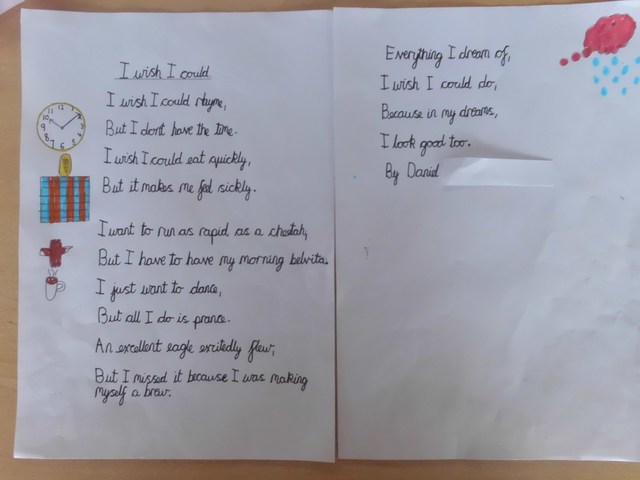 I wish I could
I wish I could rhyme,
But I dont have the time.
I wish I could eat quickly,
But it makes me feel sickly.
I want to run as rapid as a cheetah,
But I have to have my morning belvita.
I just want to dance,
But all I do is prance.
An excellent eagle excitedly flew,
But I missed it because I was making
myself a brew.
Everything I dream of,
I wish I could do,
Because in my dreams,
I look good too.
By Daniel